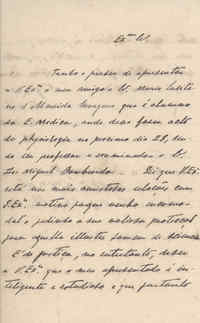 Exº Sr.
Tenho o prazer de apresentar
a V. Exª o meu amigo e Sr.
d'Almeida que é alumno
da E. Medica, onde deve fazer acto
de physiologia no proximo dia 28, sen-
do seu professor e examinador o Sr.
Dr. Miguel Bombarda. Dizem V. Exª
está nas mais amistosas relações com
S. Exª, motivo porque venho incommo-
dal-o pedindo a sua valiosa protecção
para aquelle illustre homem de sciencia
É de justiça, no entretanto, dizer
a V. Exª que o meu apresentado é in-
telligente e estudioso e que portanto